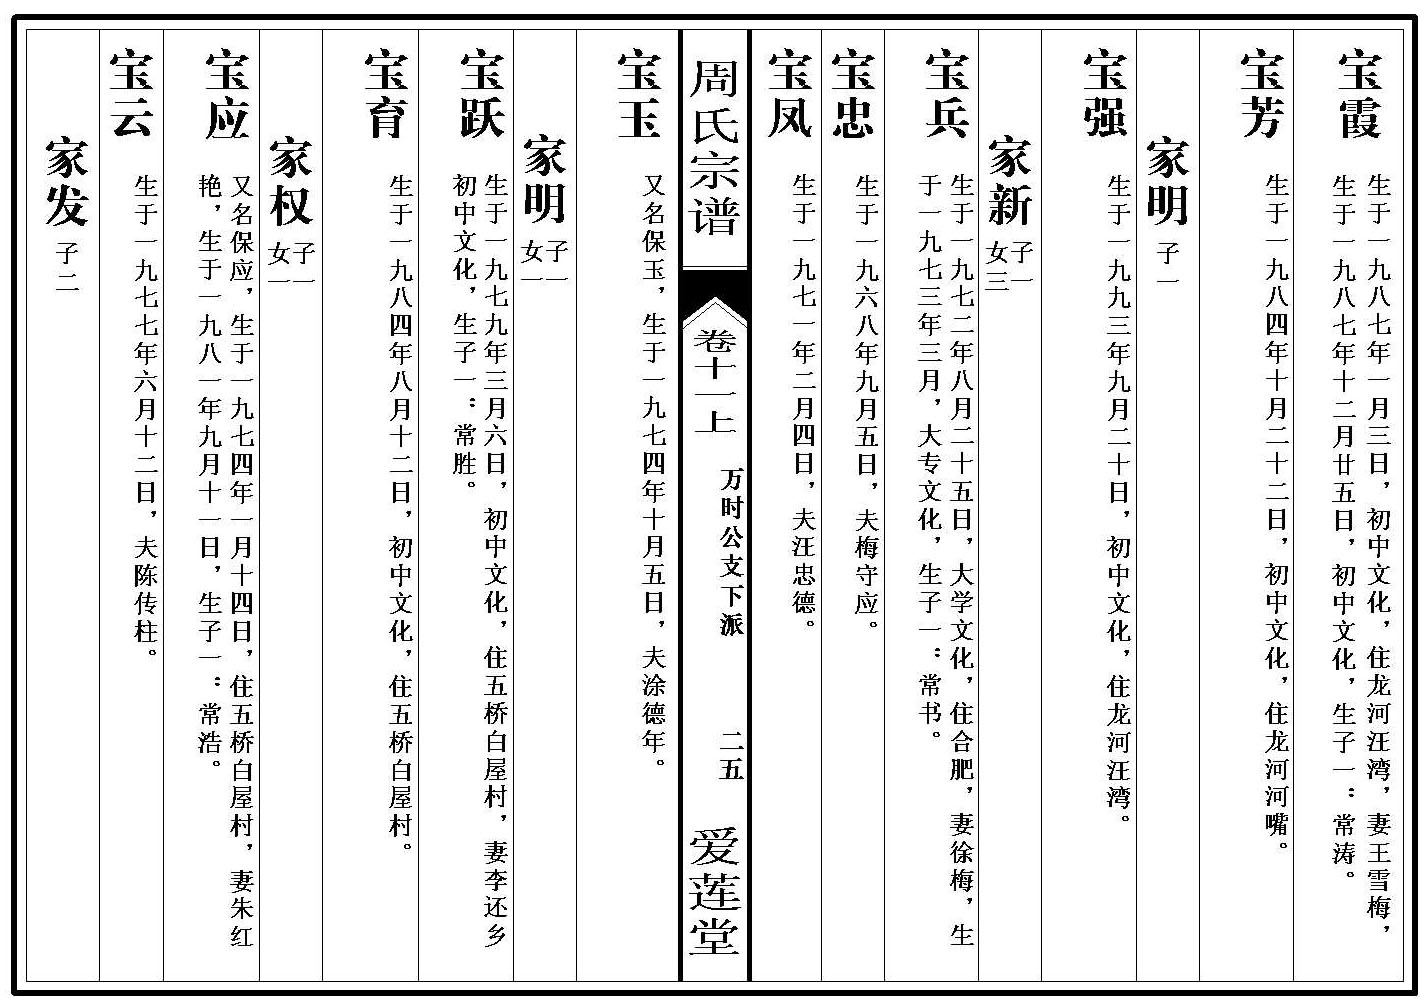 宝霞
生于一九八七年一月三日，初中文化，住龙河汪湾，妻王雪梅，
生于一九八七年十二月廿五日，初中文化，生子一：常涛。
宝芳
生于一九八四年十月二十二日，初中文化，住龙河河嘴。
家明
子一
宝强
生于一九九三年九月二十日，初中文化，住龙河汪湾。
家新
子一
女三
宝兵
生于一九七二年八月二十五日，大学文化，住合肥，妻徐梅，生
于一九七三年三月，大专文化，生子一：常书。
宝忠
生于一九六八年九月五日，夫梅守应。
宝凤
生于一九七一年二月四日，夫汪忠德。
周氏宗谱
卷十一上
万时公支下派
二五
爱莲堂
宝玉
又名保玉，生于一九七四年十月五日，夫涂德年。
家明
子一
女一
宝跃
生于一九七九年三月六日，初中文化，住五桥白屋村，妻李还乡
初中文化，生子一：常胜。
宝育
生于一九八四年八月十二日，初中文化，住五桥白屋村。
家权
子一
女一
宝应
又名保应，生于一九七四年一月十四日，住五桥白屋村，妻朱红
艳，生于一九八一年九月十一日，生子一：常浩。
宝云
生于一九七七年六月十二日，夫陈传柱。
家发
子二